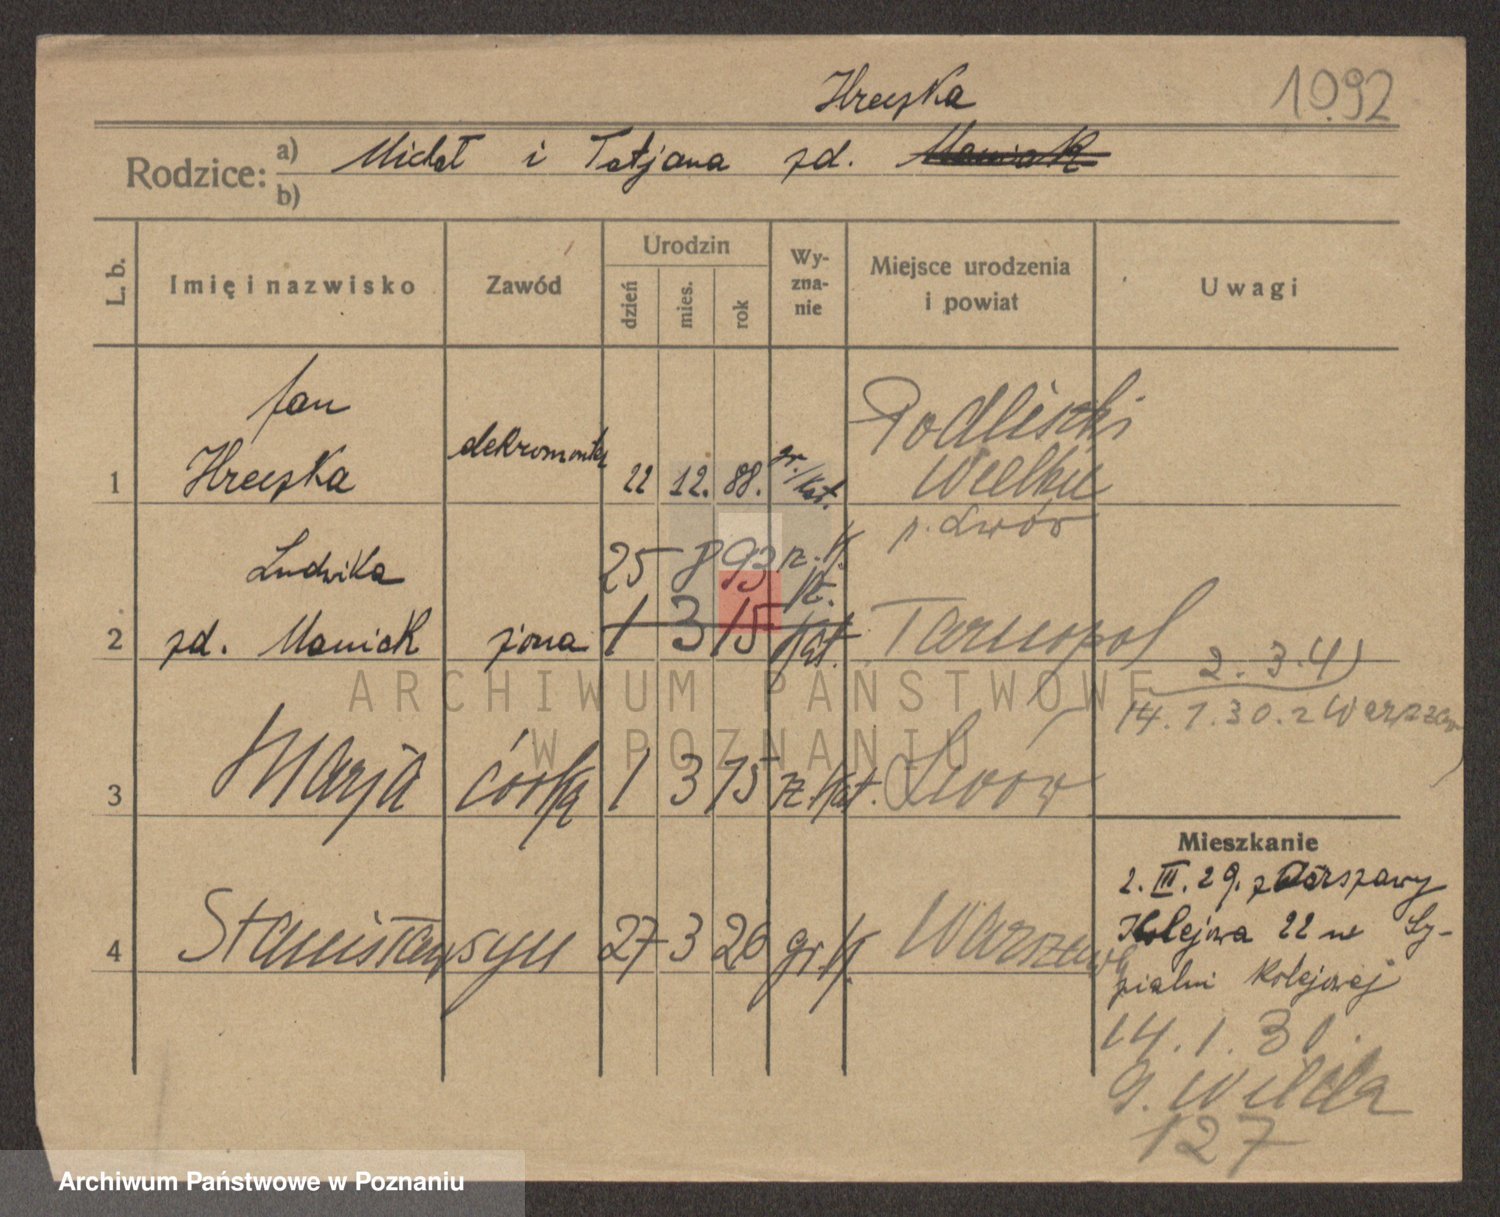 Hreczka
1092
Rodzice: a) Michał i Tatjana zd. Maniak
b)
L. b.
Imię i nazwisko
Zawód
Urodzin
dzień
mies.
rok
Wy-
zna-
nie
Miejsce urodzenia
i powiat
Uwagi
1
Jan
Hreczka
elektromonter
22 12. 88.
gr./kat.
Podliski
Wielkie
p. Lwów
2
Ludwika
zd. Maniak
żona
25 8 93 rz. k.
1 3 15 kat.
Tarnopol
2. 3. 4)
14. 1. 30. z Warszawy
3
Marja
córka
1 3 15
rz. kat.
Lwów
4
Stanisław
syn
27 3 26
gr. k.
Warszawa
Mieszkanie
2. III. 29. z Warszawy
Kolejowa 22 w Sy-
pialni Kolejowej
14. 1. 30.
G. Wilda
127
ARCHIWUM PAŃSTWOWE
W POZNANIU
Archiwum Państwowe w Poznaniu